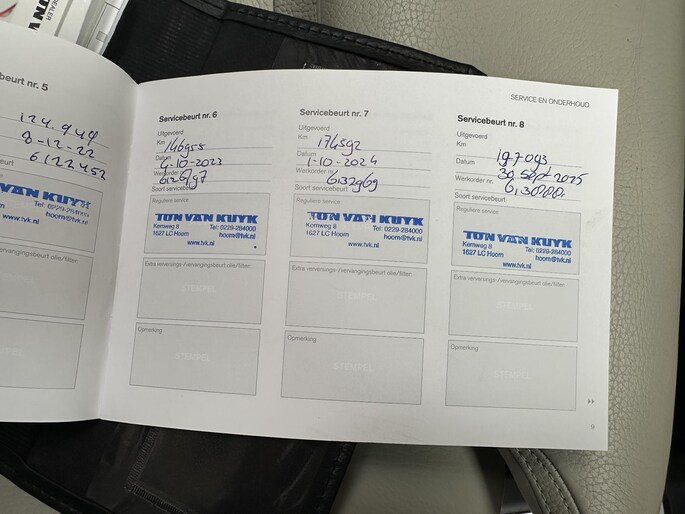 SERVICE EN ONDERHOUD
beurt nr. 5
124.944
8-12-22
6122452
beurt
VAN KUYK
Tel: 0229-284000
hoorn@tvk.nl
verversings-/vervangingsbeurt olie/filter:
Servicebeurt nr. 6
Uitgevoerd
Km 146955
Datum 4-10-2023
Werkorder nr.
Soort servicebeurt
Reguliere service
TON VAN KUYK
Kernweg 8 Tel: 0229-284000
1627 LC Hoorn hoorn@tvk.nl
www.tvk.nl
Extra verversings-/vervangingsbeurt olie/filter:
STEMPEL
Opmerking
STEMPEL
Servicebeurt nr. 7
Uitgevoerd
Km 174592
Datum 1-10-2024
Werkorder nr. 6132969
Soort servicebeurt
Reguliere service
TON VAN KUYK
Kernweg 8 Tel: 0229-284000
1627 LC Hoorn hoorn@tvk.nl
www.tvk.nl
Extra verversings-/vervangingsbeurt olie/filter:
STEMPEL
Opmerking
STEMPEL
Servicebeurt nr. 8
Uitgevoerd
Km 197093
Datum 30 sep 2025
Werkorder nr.
Soort servicebeurt
Reguliere service
TON VAN KUYK
Kernweg 8 Tel: 0229-284000
1627 LC Hoorn hoorn@tvk.nl
www.tvk.nl
Extra verversings-/vervangingsbeurt olie/filter:
STEMPEL
Opmerking
STEMPEL
9